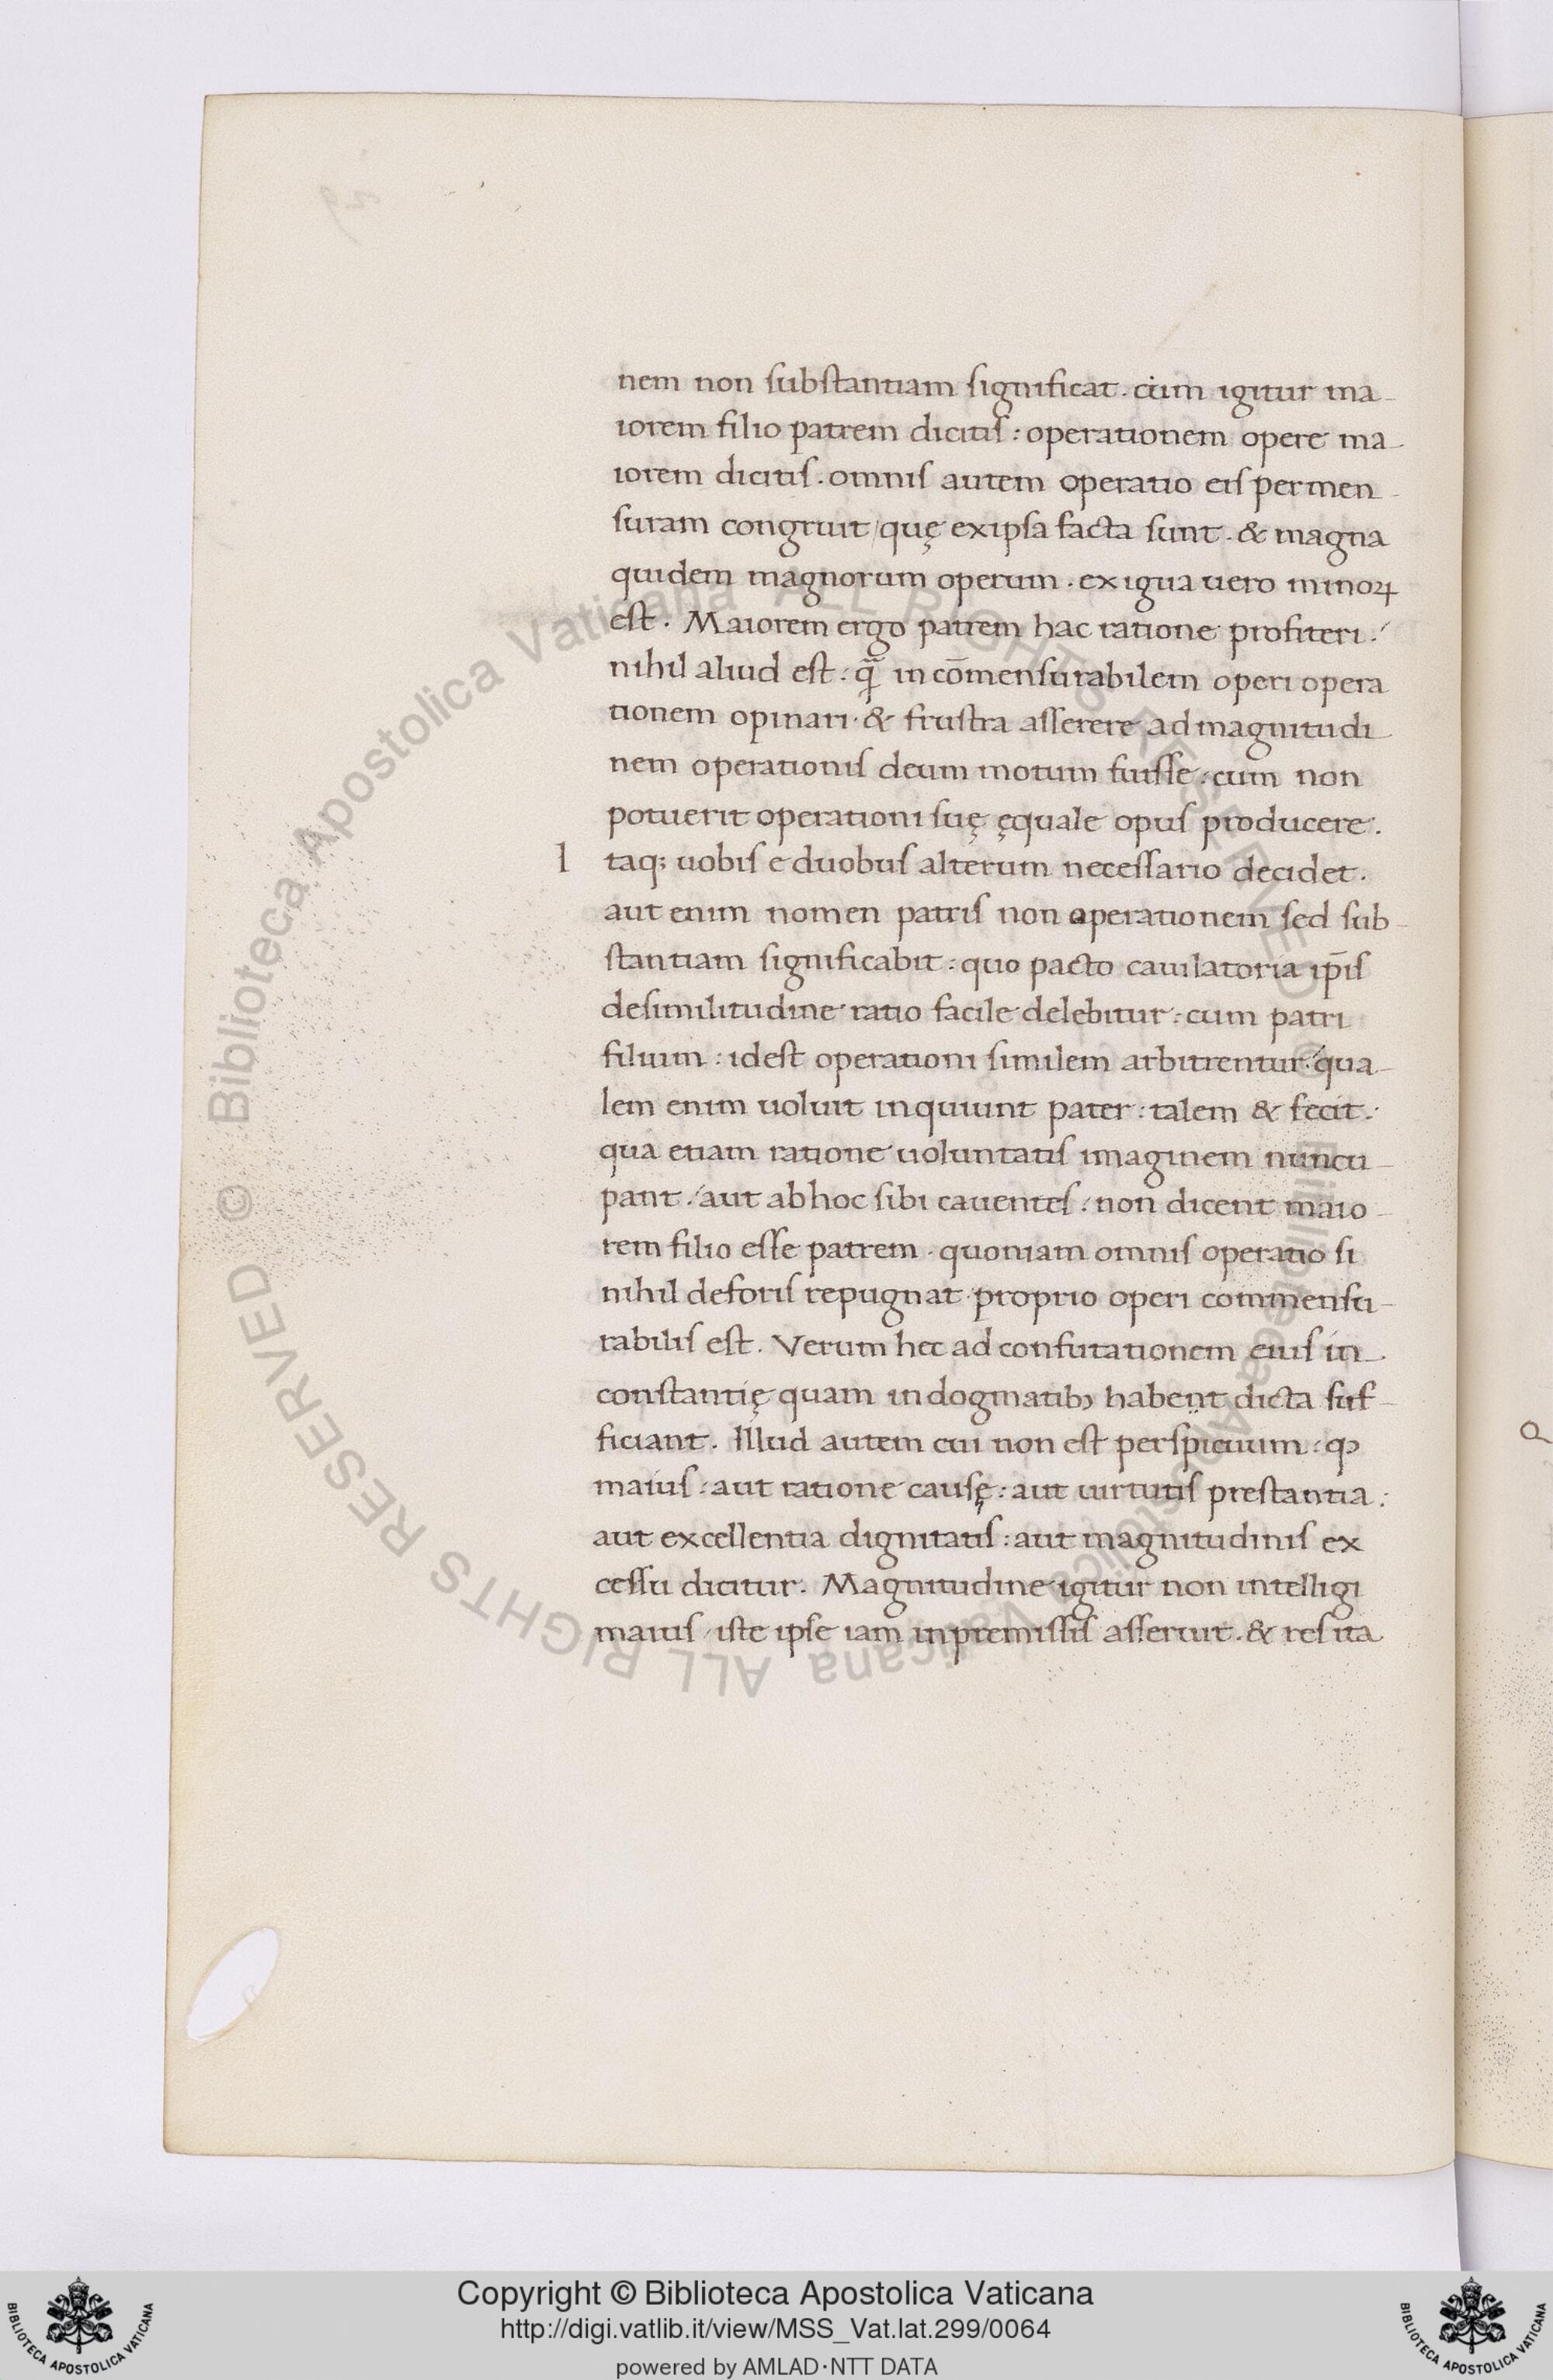 nem non substantiam significat. cum igitur ma-
iorem filio patrem dicitis: operationem opere ma-
iorem dicitis. omnis autem operatio eis permen-
suram congruit / quę exipsa facta sunt. & magna
quidem magnorum operum. exigua uero minorꝝ
est. Maiorem ergo patrem hac ratione profiteri:
nihil aliud est: q̄ incōmensurabilem operi opera
tionem opinari. & frustra asserere admagnitudi
nem operationis deum motum fuisse: cum non
potuerit operationi suę ęquale opus producere.
I taq; uobis e duobus alterum necessario decidet.
aut enim nomen patris non operationem sed sub-
stantiam significabit: quo pacto cauilatoria ip̄is
desimilitudine ratio facile delebitur: cum patri
filium: idest operationi similem arbitrentur: qua-
lem enim uoluit inquiunt pater: talem & fecit:
qua etiam ratione uoluntatis imaginem nuncu-
pant: aut abhoc sibi cauentes: non dicent maio-
rem filio esse patrem. quoniam omnis operatio si
nihil deforis repugnat. proprio operi commensu-
rabilis est. Verum hec ad confutationem eius in-
constantię quam indogmatibꝫ habent dicta suf-
ficiant. Illud autem cui non est perspicuum: qꝫ
maius: aut ratione causę: aut uirtutis prestantia:
aut excellentia dignitatis: aut magnitudinis ex
cessu dicitur. Magnitudine igitur non intelligi
maius / iste ipse iam inpremissis asseruit. & res ita
Copyright © Biblioteca Apostolica Vaticana
http://digi.vatlib.it/view/MSS_Vat.lat.299/0064
powered by AMLAD·NTT DATA
BIBLIOTECA APOSTOLICA VATICANA
BIBLIOTECA APOSTOLICA VATICANA
© Biblioteca Apostolica Vaticana ALL RIGHTS RESERVED
© Biblioteca Apostolica Vaticana ALL RIGHTS RESERVED